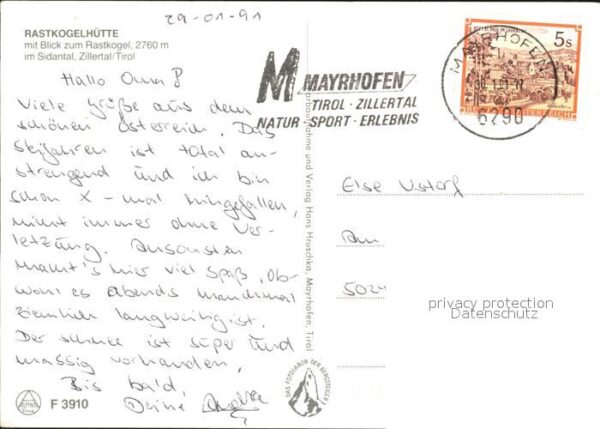 29-01-91
RASTKOGELHÜTTE
mit Blick zum Rastkogel, 2760 m
im Sidantal, Zillertal/Tirol
Hallo Oma!
Viele Grüße aus dem
schönen Österreich. Das
Skifahren ist total an-
strengend und ich bin
schon x-mal hingefallen,
nicht immer ohne Ver-
letzung. Ansonsten
macht's hier viel Spaß, ob-
wohl es abends manchmal
ziemlich langweilig ist.
Der Schnee ist super und
massig vorhanden.
Bis bald
Deine
F 3910
M MAYRHOFEN
TIROL · ZILLERTAL
NATUR · SPORT · ERLEBNIS
MAYRHOFEN
6290
5s
REPUBLIK ÖSTERREICH
Aufnahme und Verlag Hans Hruschka, Mayrhofen, Tirol
DAS FOTOLABOR DER BERGSTEIGER
Else Ustorf
Am
5024
privacy protection
Datenschutz